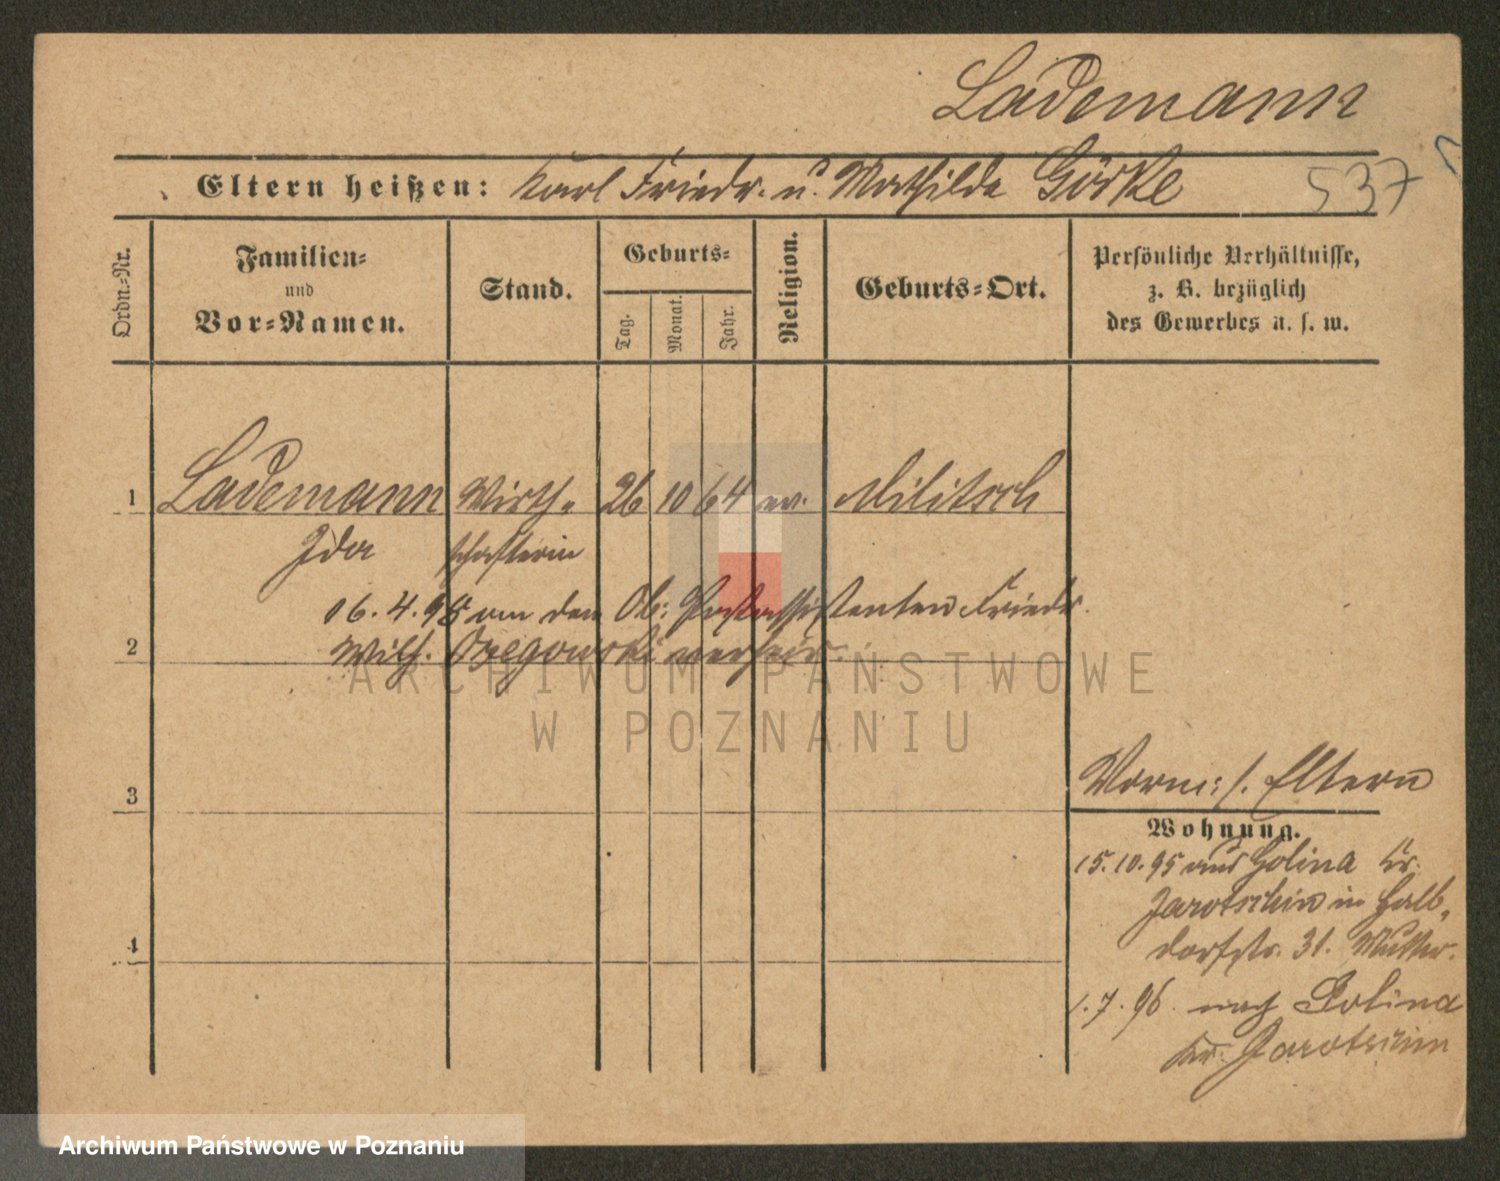 Lademann
Eltern heißen: Karl Friedr. u. Mathilde Görke
537
Ordn.-Nr.
Familien-
und
Vor-Namen.
Stand.
Geburts-
Tag.
Monat.
Jahr.
Religion.
Geburts-Ort.
Persönliche Verhältnisse,
z. B. bezüglich
des Gewerbes u. s. w.
1 Lademann Wirth- 26 10 64 ev. Militsch
Ida schafterin
16.4.98 an den Ob: Postassistenten Friedr.
2 Wilh. verheir.
ARCHIWUM PAŃSTWOWE
W POZNANIU
3
Vorm: s. Eltern
Wohnung.
15.10.95 aus Golina Kr.
Jarotschin in Halb-
4
dorfstr. 31. Mutter.
1.7.96. nach Golina
Kr. Jarotschin
Archiwum Państwowe w Poznaniu